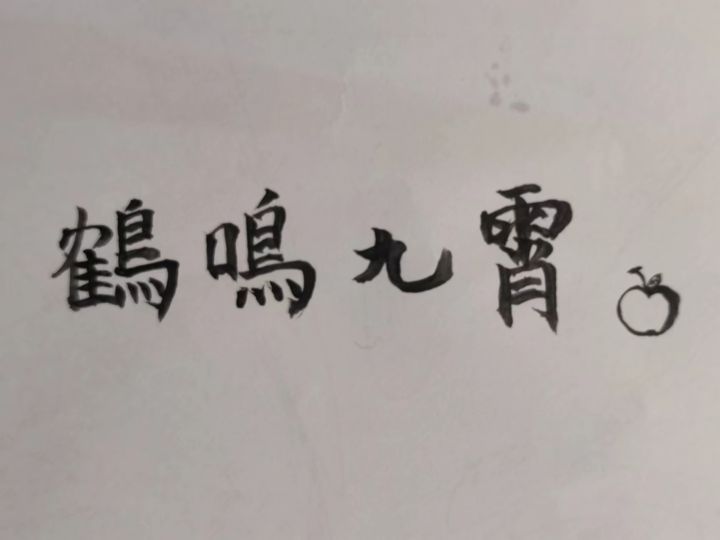 鶴鳴九霄。